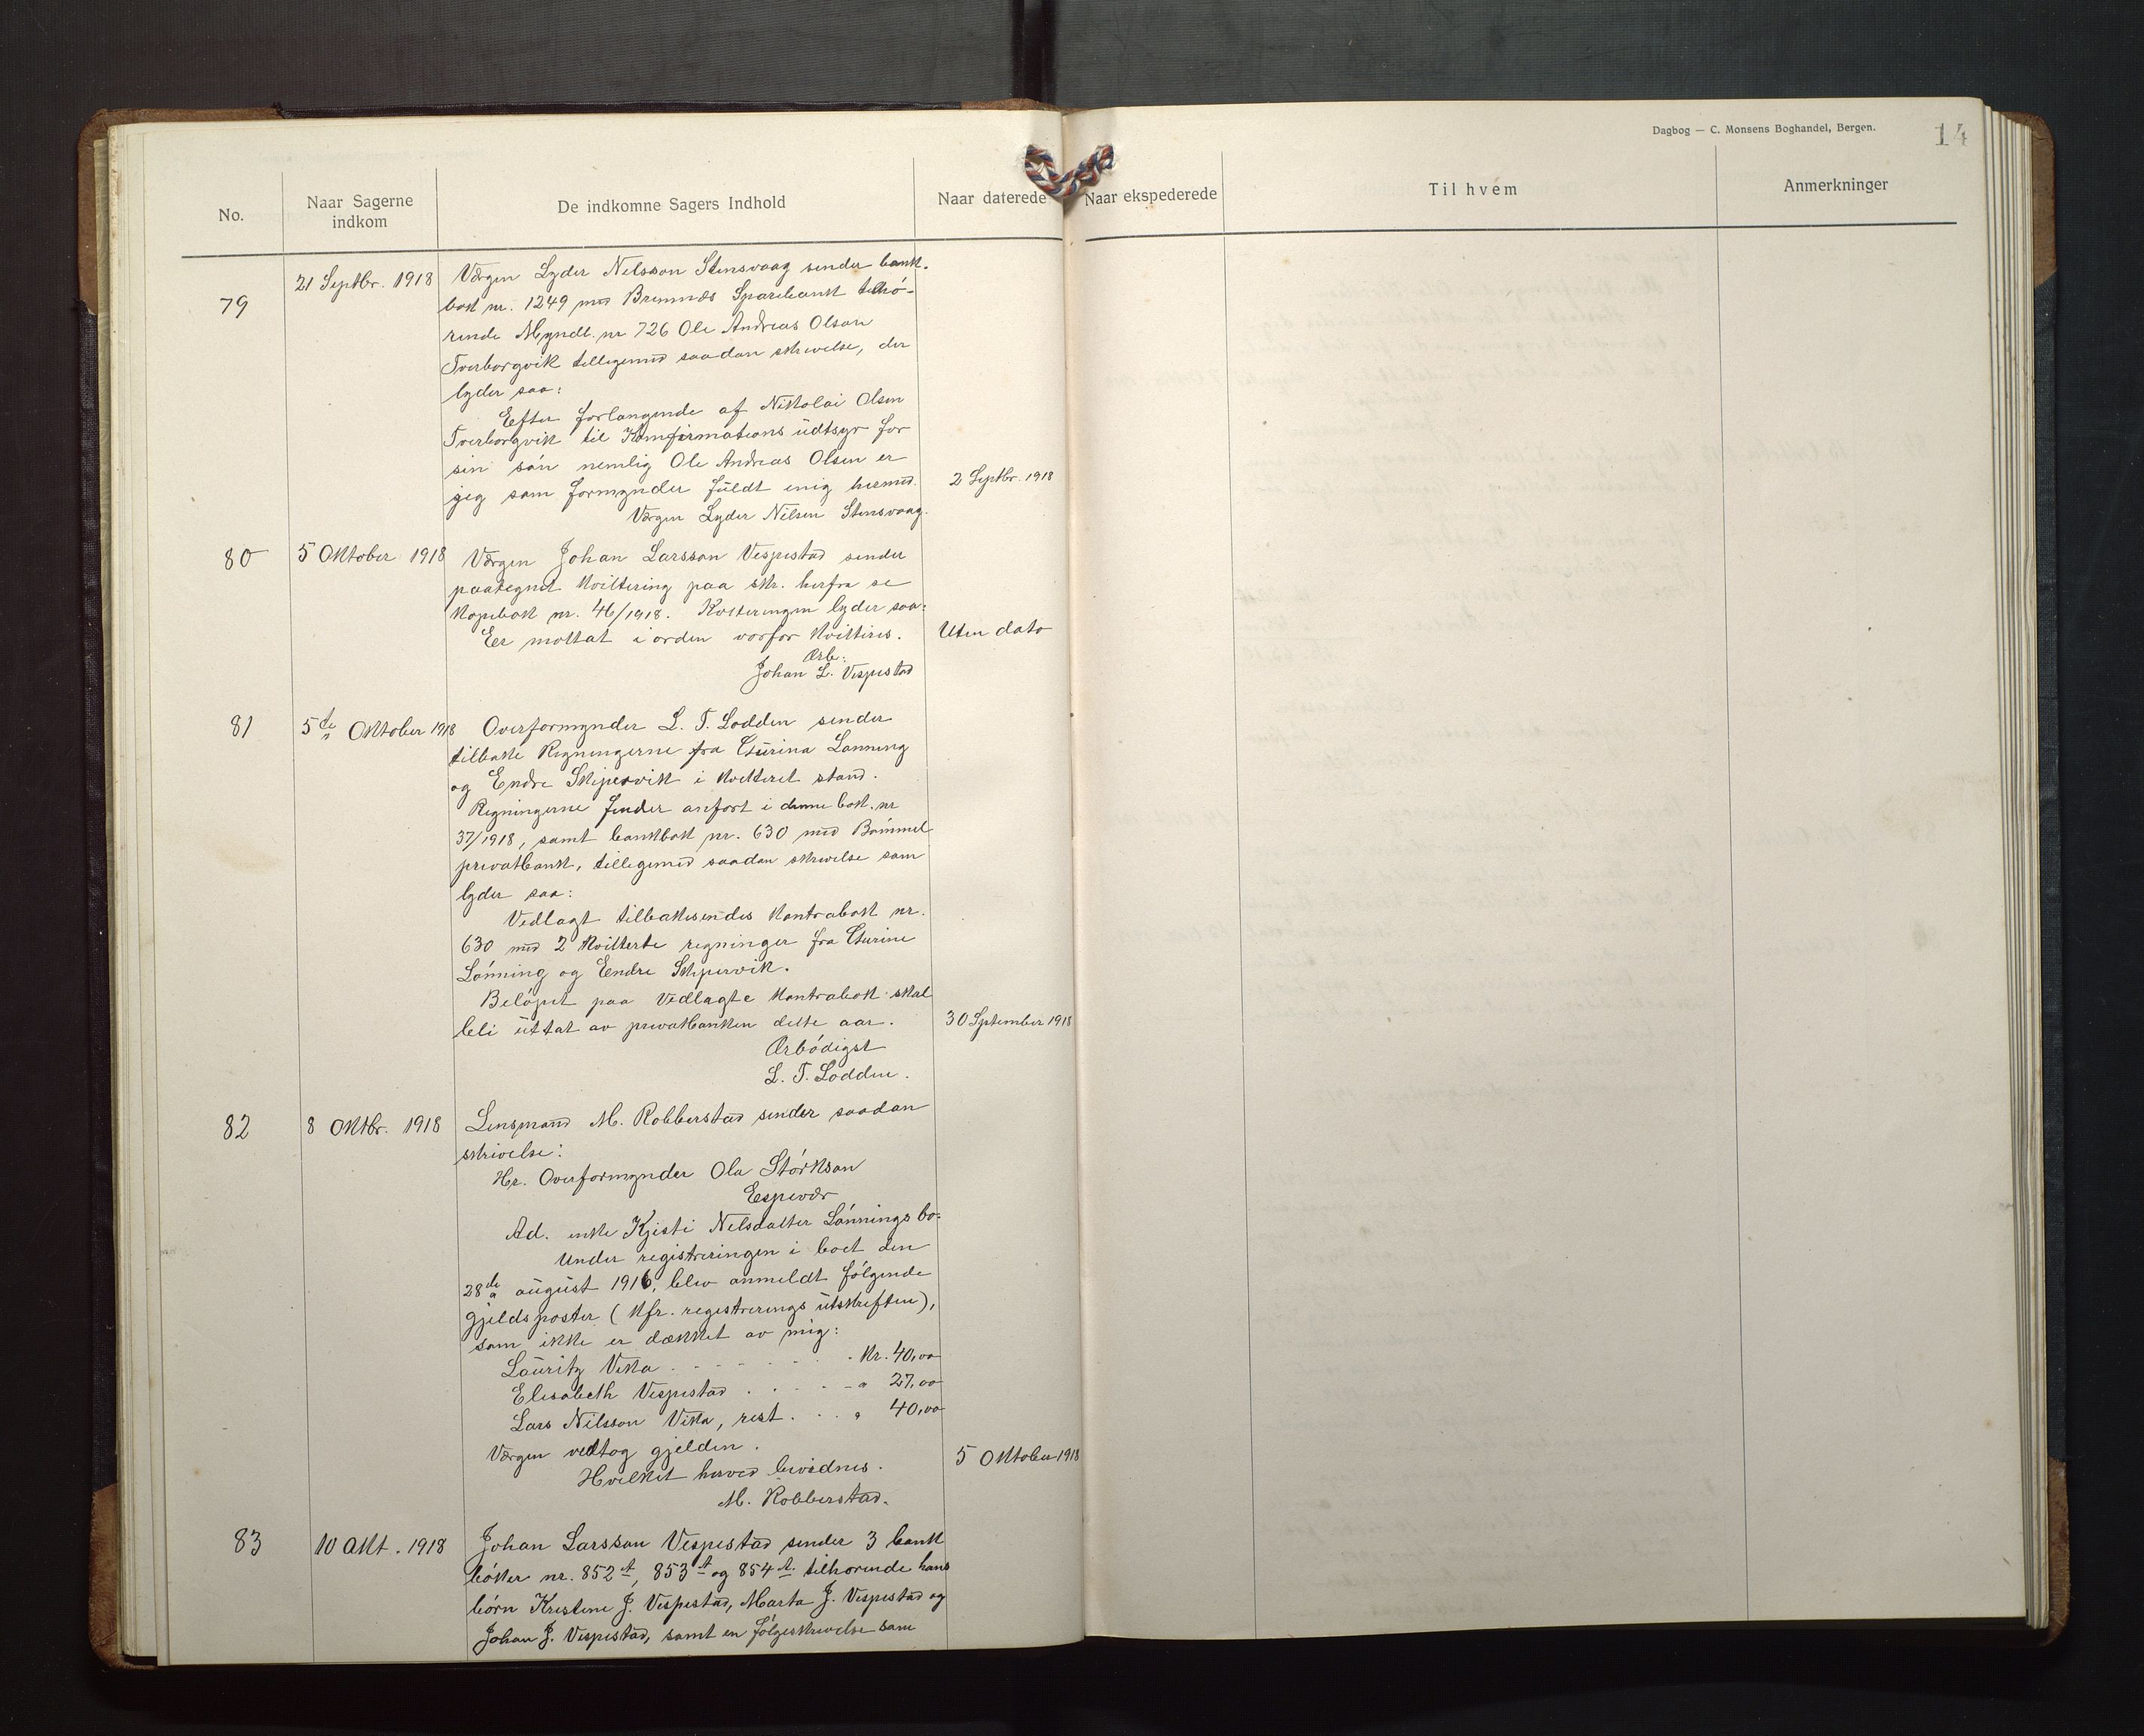 Dagbog — C. Monsens Boghandel, Bergen.
14
No.
Naar Sagerne indkom
De indkomne Sagers Indhold
Naar daterede
Naar ekspederede
Til hvem
Anmerkninger
79
21 Septbr. 1918
Værgen Lyder Nelsson Stensvaag sender bank-
bok nr. 1249 med Bremnæs Sparebank tilhö-
rende Myndl. nr 726 Ole Andreas Olson
Tverborgvik tillegemed saadan skrivelse, der
lyder saa:
Efter forlangende af Nikolai Olsen
Tverborgvik til Konfirmations üdtsyr for
sin són nemlig Ole Andreas Olsen er
jeg som formynder füldt enig hermed.
2 Septbr. 1918
Værgen Lyder Nilsen Stensvaag.
80
5 Oktober 1918
Værgen Johan Larsson Vespestad sender
paategnet kvittering paa skr. herfra se
Kopibok nr. 46/1918. Kvitteringen lyder saa:
Eer mottat i orden vorfor kvitteres.
Uten dato
Ærb:
Johan L. Vespestad
81
5te Oktober 1918
Overformynder L. T. Lodden sender
tilbake Regningerne fra Türina Lønning
og Endre Skipervik i kvitteret stand.
Regningerne finder anfort i denne bok. nr
37/1918, samt bankbok nr. 630 med Bömmel
privatbank, tillegemed saadan skrivelse som
lyder saa:
Vedlagt tilbakesendes Kontrabok nr.
630 med 2 kvitterte regninger fra Türine
Lónning og Eendre Skipervik.
Belópet paa Vedlagte Kontrabok skal
bli üttat av privatbanken dette aar.
30 September 1918
Ærbódigst
L. T. Lodden.
82
8 Oktbr. 1918
Lensmand M. Robberstad sender saadan
skrivelse:
Hr. Overformynder Ola Stórkson
Espevær
Ad. enke Kjisti Nelsdatter Lónnings bo-
Under registreringen i boet den
28de august 1916, blev anmeldt fólgende
gjeldsposter (Kfr. registrerings ütskriften),
som ikke er dækket av mig:
Lauritz Vika . . . . . . . Kr. 40,00
Elisabeth Vespestad . . . . . " 27,00
Lars Nilsson Vika, rest . . . " 40,00
Værgen vedtog gjelden.
5 Oktober 1918
Hvilket herved bevidnes.
M. Robberstad.
83
10 Okt. 1918
Johan Larsson Vespestad sender 3 bank
bóker nr. 852 A, 853 A og 854 A. tilhorende hans
börn Kristine J. Vespestad, Marta J. Vespestad og
Johan J. Vespestad, samt en fólgeskrivelse som